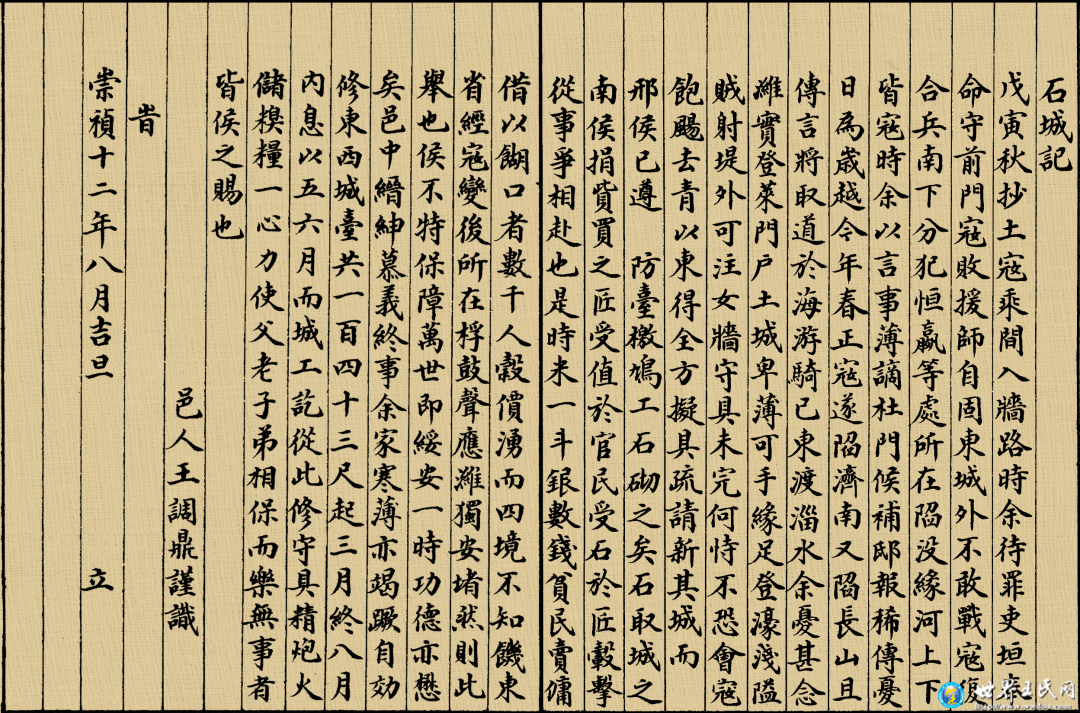 石城記
戊寅秋抄土寇乘間入牆路時余待罪吏垣奉
命守前門寇敗援師自固東城外不敢戰寇復
合兵南下分犯恒贏等處所在陷没緣河上下
皆寇時余以言事薄謫杜門候補邸報稀傳憂
日為歲越今年春正寇遂陷濟南又陷長山且
傳言將取道於海游騎已東渡淄水余憂甚念
濰實登萊門户土城卑薄可手緣足登濠淺隘
賊射堤外可注女牆守具未完何恃不恐會寇
飽颺去青以東得全方擬具疏請新其城而
邢侯已遵 防臺檄鳩工石砌之矣石取城之
南侯捐貲買之匠受值於官民受石於匠轂擊
從事爭相赴也是時米一斗銀數錢貧民賣傭
借以餬口者數千人穀價湧而四境不知饑東
省經寇變後所在桴鼓聲應濰獨安堵然則此
舉也侯不特保障萬世即綏安一時功德亦懋
矣邑中縉紳慕義終事余家寒薄亦竭蹶自効
修東西城臺共一百四十三尺起三月終八月
內息以五六月而城工訖從此修守具精炮火
儲糗糧一心力使父老子弟相保而樂無事者
皆侯之賜也
邑人王調鼎謹識
旹
崇禎十二年八月吉旦 立
世界王氏网